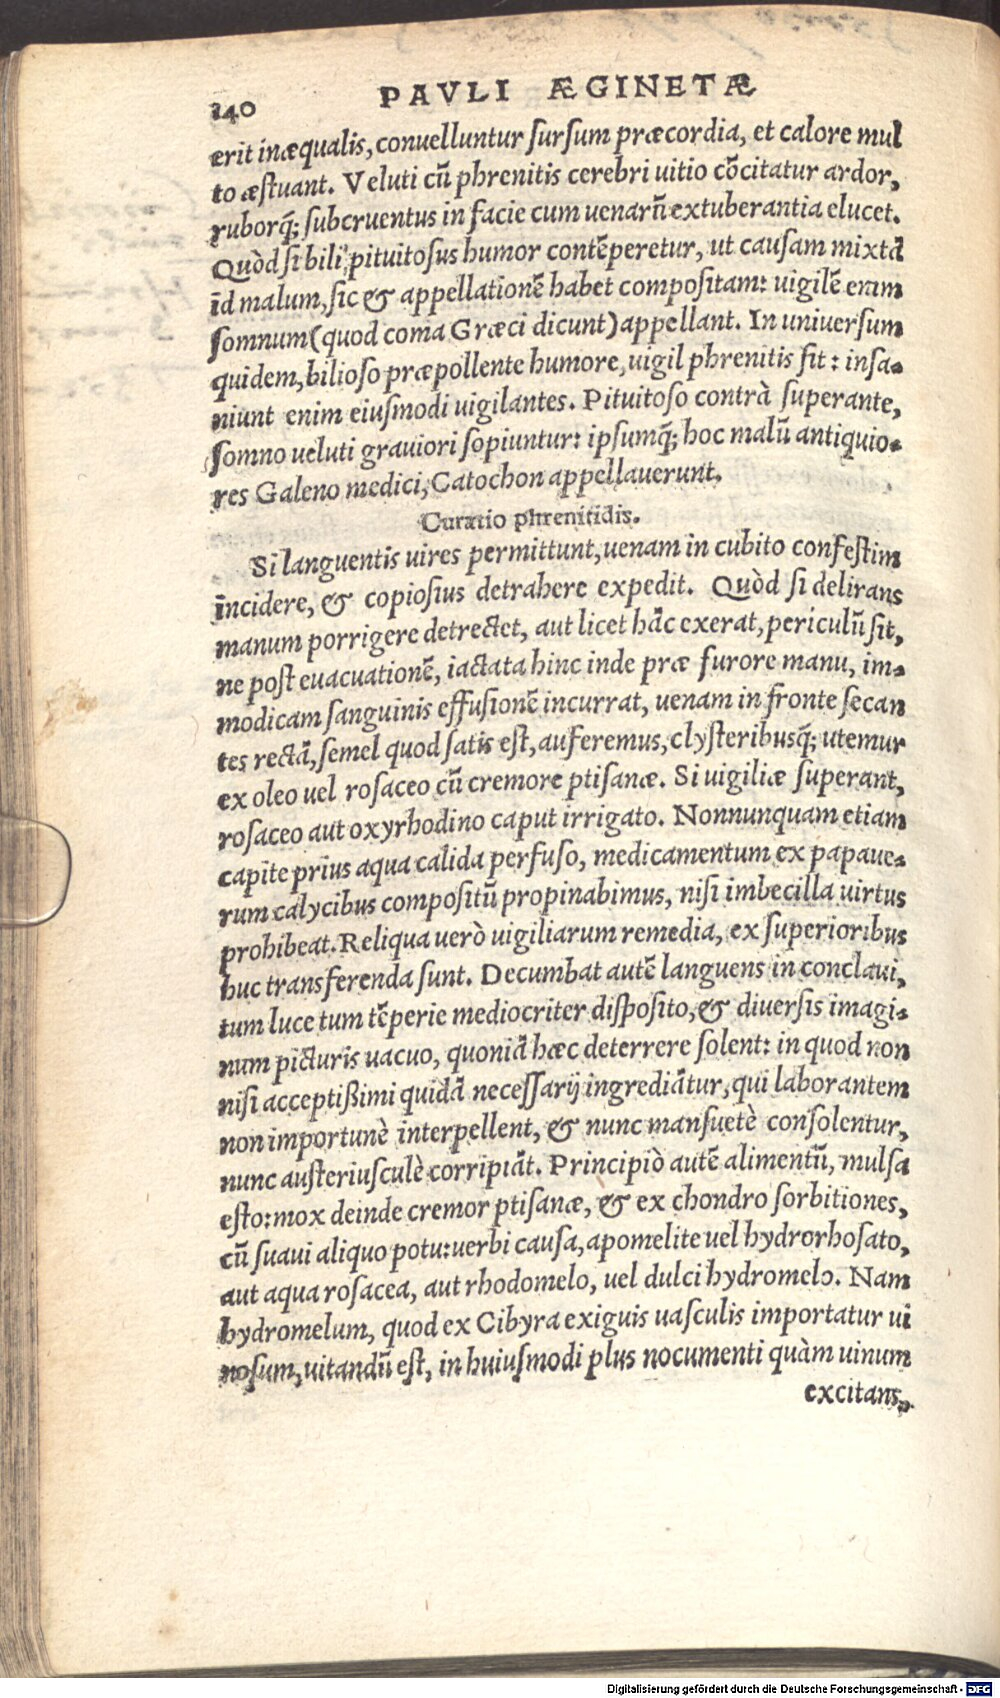 240 PAVLI ÆGINETÆ
erit inæqualis, conuelluntur ſurſum præcordia, et calore mul
to æſtuant. Veluti cũ phrenitis cerebri uitio cõcitatur ardor,
ruborq́; ſubcruentus in facie cum uenarũ extuberantia elucet.
Quòd ſi bili pituitoſus humor contẽperetur, ut cauſam mixtã
id malum, ſic & appellationẽ habet compoſitam: uigilẽ enim
ſomnum (quod coma Græci dicunt) appellant. In uniuerſum
quidem, bilioſo præpollente humore, uigil phrenitis fit: inſa-
niunt enim eiuſmodi uigilantes. Pituitoſo contrà ſuperante,
ſomno ueluti grauiori ſopiuntur: ipſumq́; hoc malũ antiquio-
res Galeno medici, Catochon appellauerunt.
Curatio phrenitidis.
Si languentis uires permittunt, uenam in cubito confeſtim
incidere, & copioſius detrahere expedit. Quòd ſi delirans
manum porrigere detrectet, aut licet hãc exerat, periculũ ſit,
ne poſt euacuationẽ, iactata hinc inde præ furore manu, im-
modicam ſanguinis effuſionẽ incurrat, uenam in fronte ſecan
tes rectã, ſemel quod ſatis eſt, auferemus, clyſteribusq́; utemur
ex oleo uel roſaceo cũ cremore ptiſanæ. Si uigiliæ ſuperant,
roſaceo aut oxyrhodino caput irrigato. Nonnunquam etiam
capite prius aqua calida perfuſo, medicamentum ex papaue-
rum calycibus compoſitũ propinabimus, niſi imbecilla uirtus
prohibeat. Reliqua uerò uigiliarum remedia, ex ſuperioribus
huc transferenda ſunt. Decumbat autẽ languens in conclaui,
tum luce tum tẽperie mediocriter diſpoſito, & diuerſis imagi-
num picturis uacuo, quoniã hæc deterrere ſolent: in quod non
niſi acceptißimi quidã neceſſarij ingrediãtur, qui laborantem
non importunè interpellent, & nunc manſuetè conſolentur,
nunc auſteriuſculè corripiãt. Principiò autẽ alimentũ, mulſa
eſto: mox deinde cremor ptiſanæ, & ex chondro ſorbitiones,
cũ ſuaui aliquo potu: uerbi cauſa, apomelite uel hydrorhoſato,
aut aqua roſacea, aut rhodomelo, uel dulci hydromelo. Nam
hydromelum, quod ex Cibyra exiguis uaſculis importatur ui
noſum, uitandũ eſt, in huiuſmodi plus nocumenti quàm uinum
excitans,
Digitalisierung gefördert durch die Deutsche Forschungsgemeinschaft - DFG